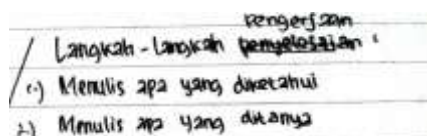 pengerjaan
Langkah - Langkah penyelesaian :
1.) Menulis apa yang diketahui
2) Menulis apa yang ditanya